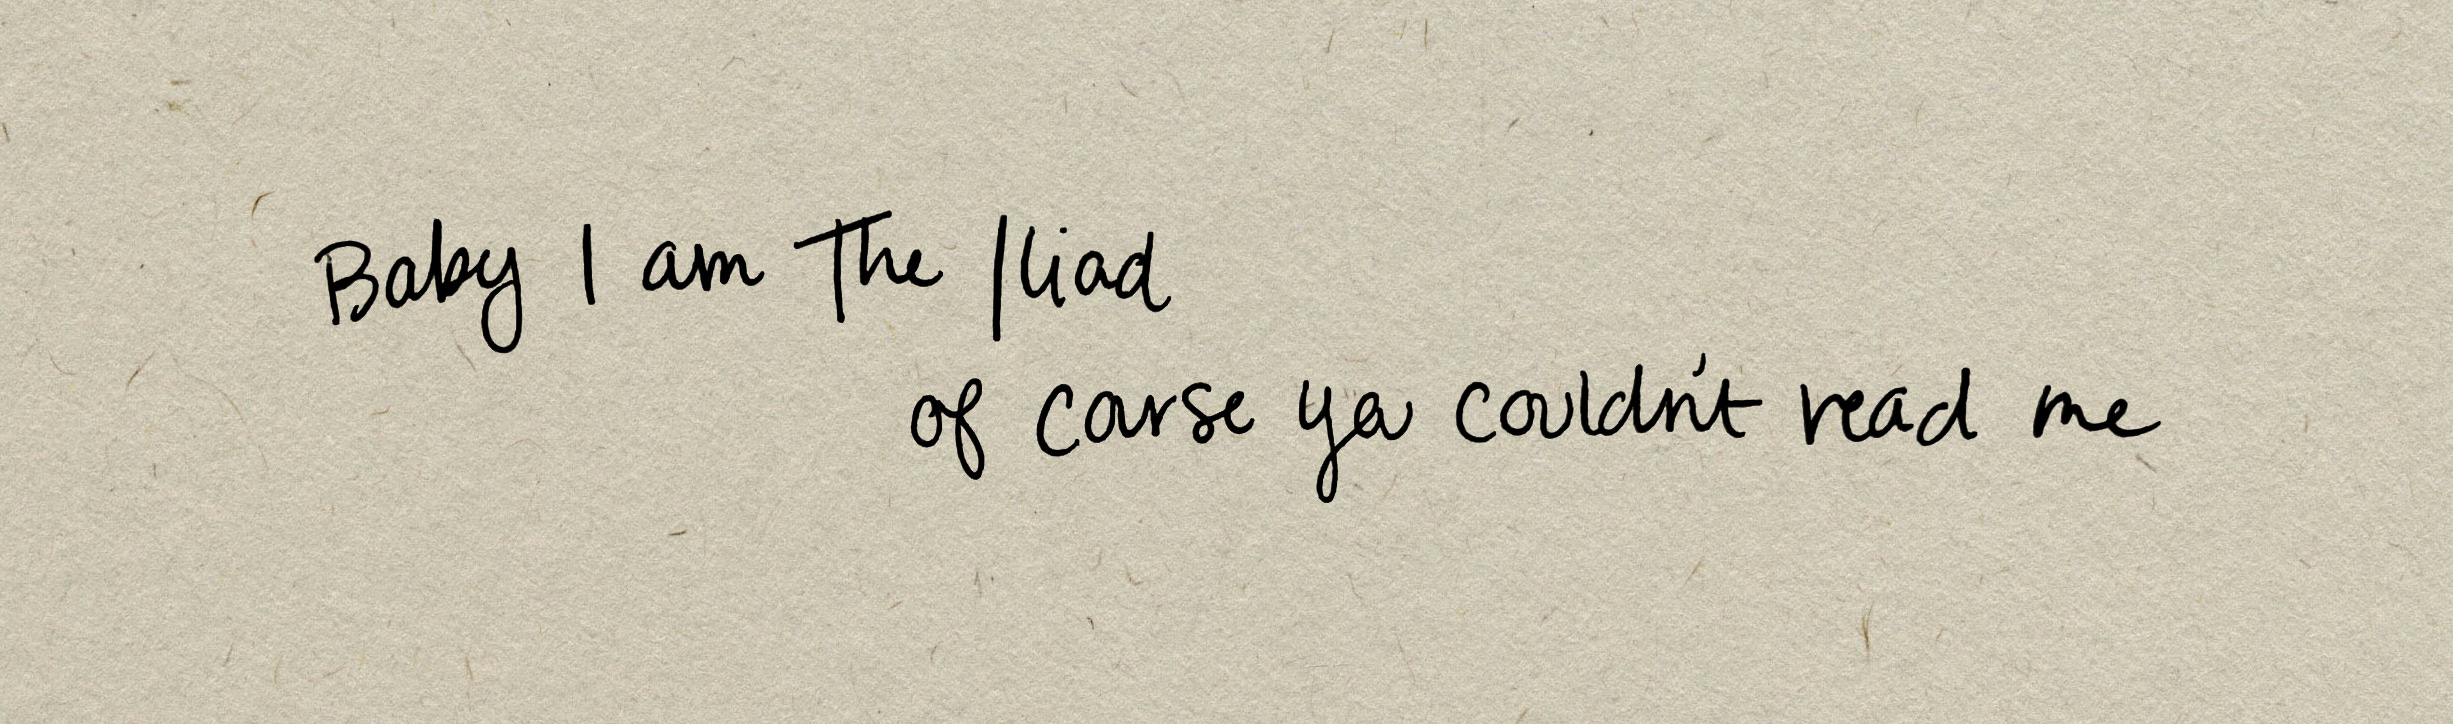 Baby I am The Iliad
of course ya couldn't read me